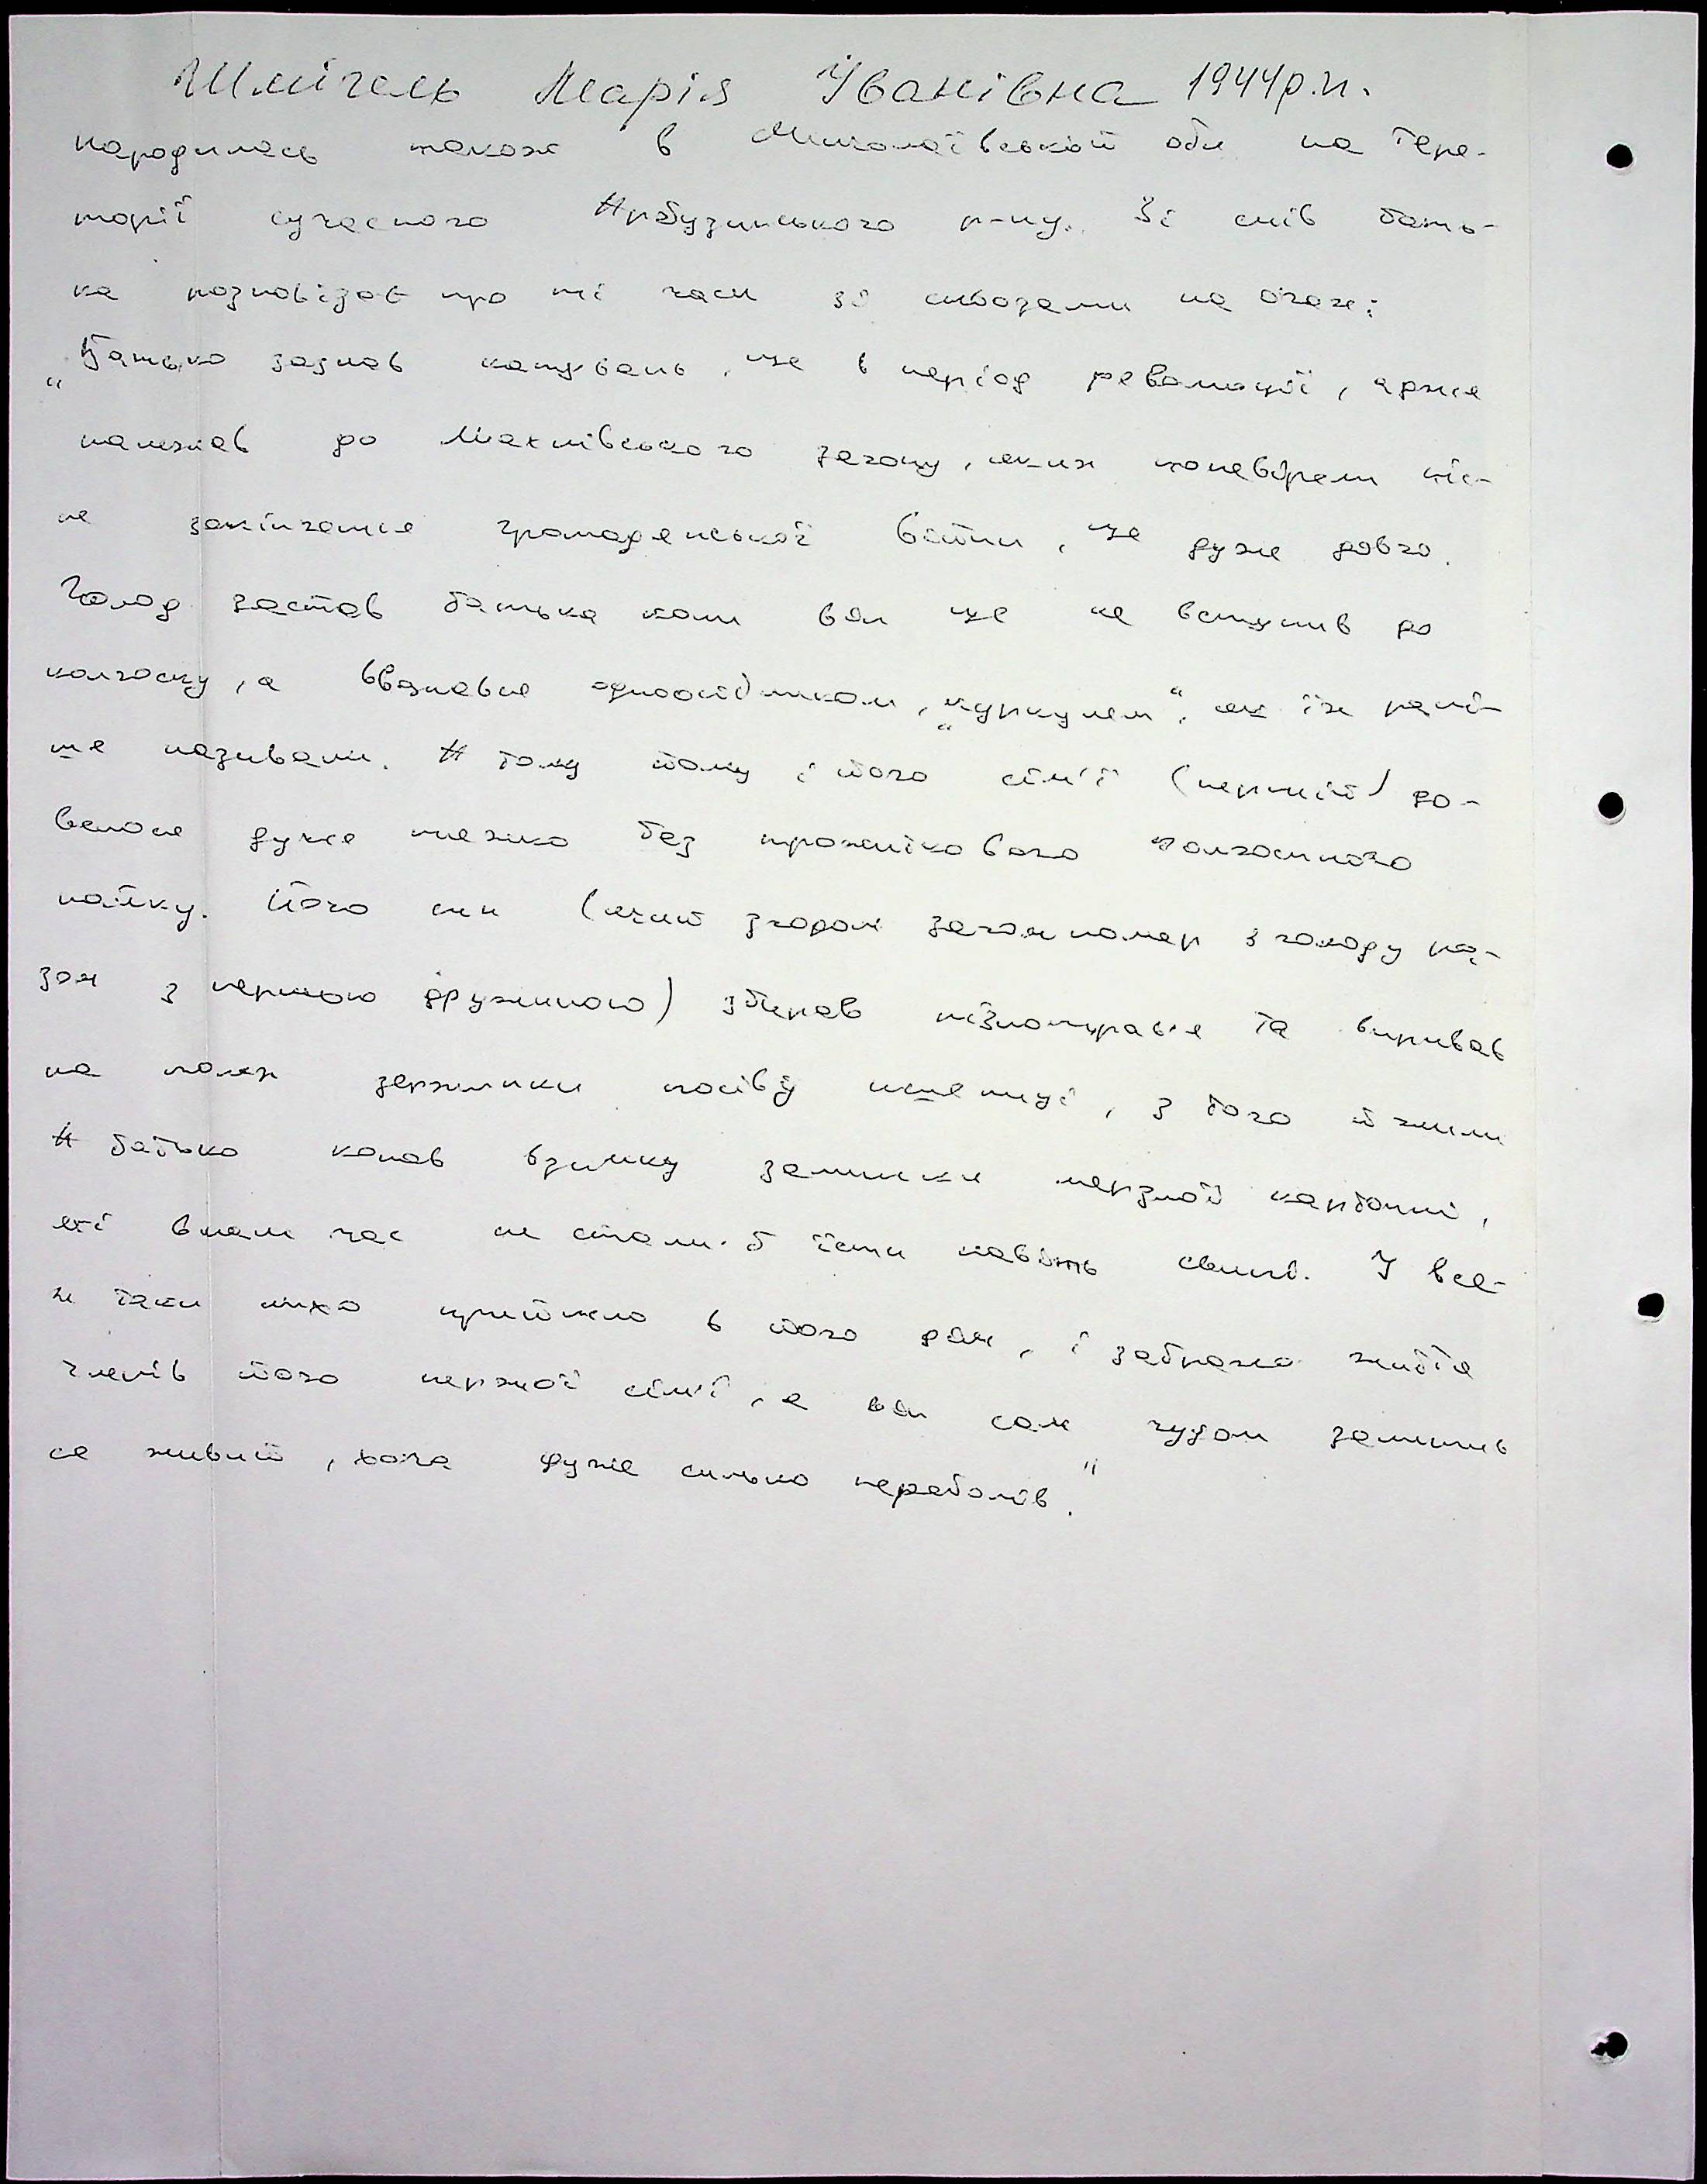 Шмігель Марія Іванівна 1944р.н.
народилась також в Миколаївській обл на тере-
торії сучасного Арбузинського р-ну. Зі слів бать-
ка розповідає про ті часи зі сльозами на очах:
„Батько зазнав катувань, ще в період революції, адже
належав до Махнівського загону, яких перевіряли піс-
ля закінчення громадянської війни, ще дуже довго.
Голод застав батька коли він ще не вступив до
колгоспу, а вважався одноосібником, „куркулем“, як їх рані-
ше називали. А тому йому і його сім'ї (першій) до-
велося дуже тяжко без прожиткового колгоспного
пайку. Його син (який згодом також помер з голоду ра-
зом з першою дружиною) збирав різнотрав'я та виривав
на полях зернинки посіву пшениці, з того й жили
А батько копав взимку залишки мерзлої картоплі,
які в наш час не стали б їсти навіть свині. І все-
ж таки лихо прийшло в його дім, і забрало життя
членів його першої сім'ї, а він сам чудом залишив
ся живий, хоча дуже сильно переболів."